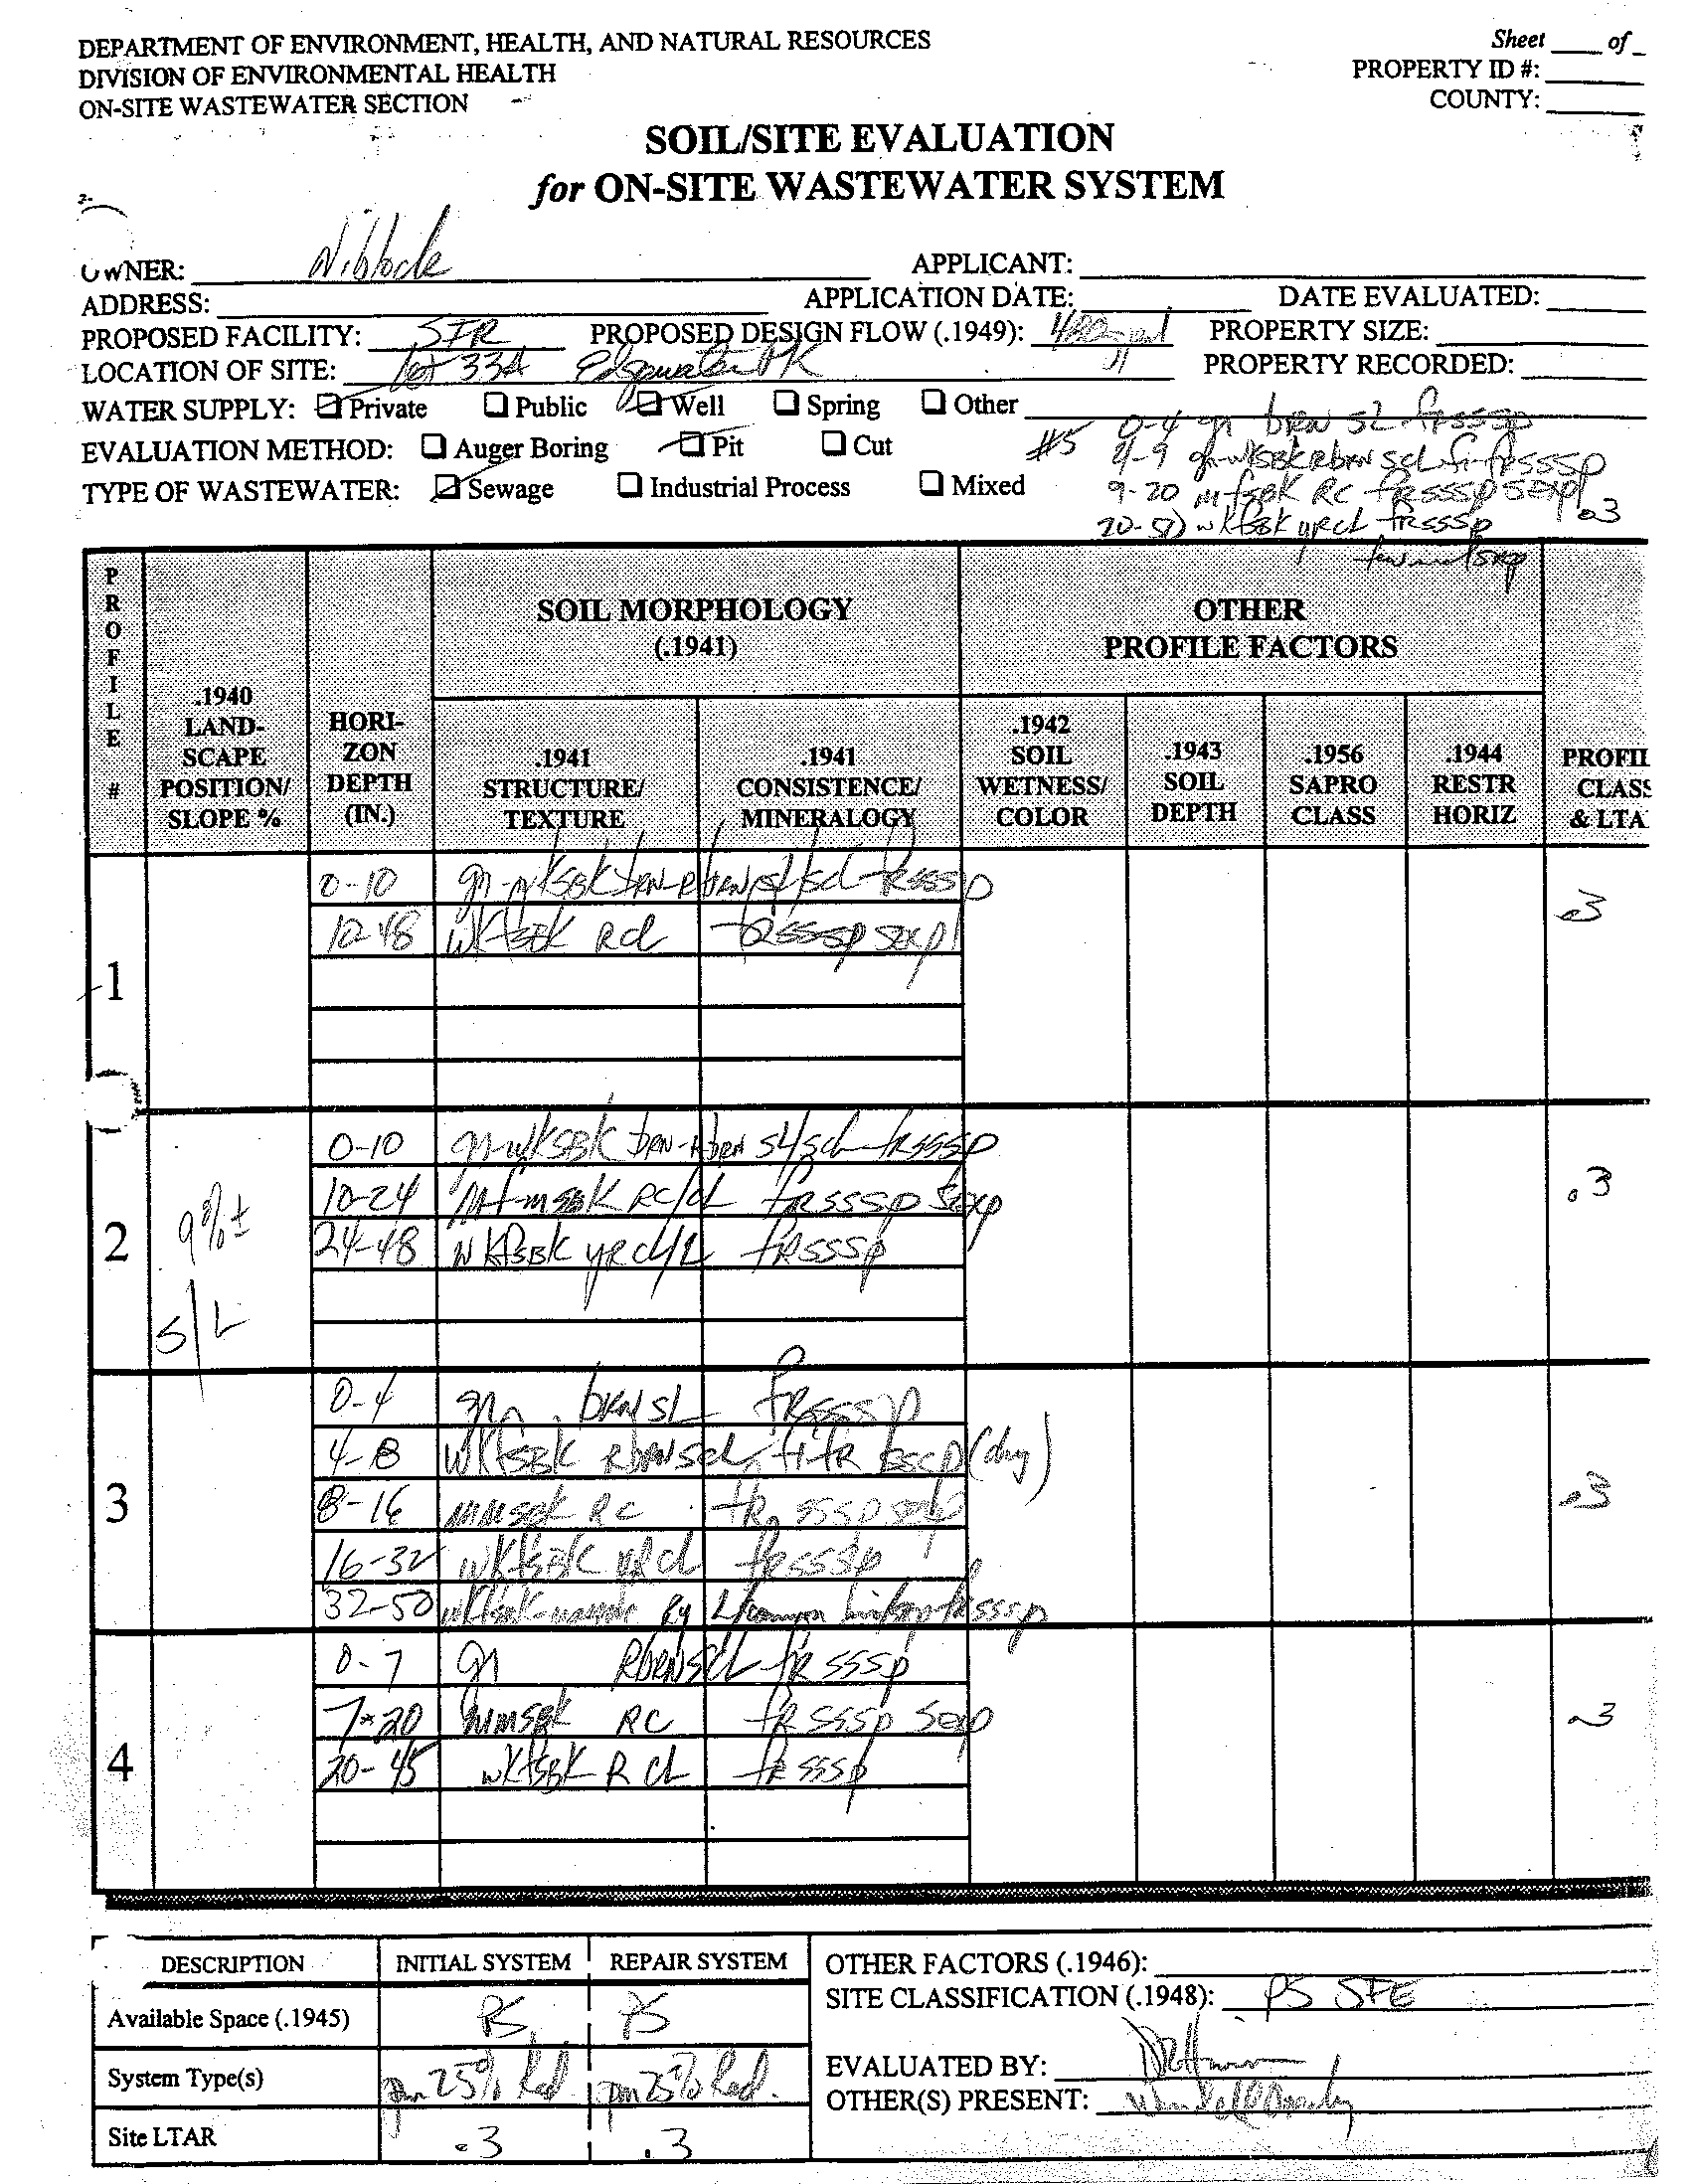 DEPARTMENT OF ENVIRONMENT, HEALTH, AND NATURAL RESOURCES
Sheet ____ of _
DIVISION OF ENVIRONMENTAL HEALTH
PROPERTY ID #:
ON-SITE WASTEWATER SECTION
COUNTY:
SOIL/SITE EVALUATION
for ON-SITE WASTEWATER SYSTEM
OWNER: Niblock APPLICANT:
ADDRESS: APPLICATION DATE: DATE EVALUATED:
PROPOSED FACILITY: SFR PROPOSED DESIGN FLOW (.1949): 480 gpd PROPERTY SIZE:
LOCATION OF SITE: Lot 33A Edgewater PK PROPERTY RECORDED:
WATER SUPPLY: Private Public Well Spring Other
EVALUATION METHOD: Auger Boring Pit Cut
TYPE OF WASTEWATER: Sewage Industrial Process Mixed
#5 0-4 gn brn SL frsssp
4-9 gn-wksbk Rbrn scl fi-frsssp
9-20 mfsbk RC frsssp sexp
.3
20-50 wkfsbk yRCL frsssp
PROFILE #
.1940 LAND-SCAPE POSITION/ SLOPE %
HORI-ZON DEPTH (IN.)
SOIL MORPHOLOGY (.1941)
OTHER PROFILE FACTORS
.1941 STRUCTURE/ TEXTURE
.1941 CONSISTENCE/ MINERALOGY
.1942 SOIL WETNESS/ COLOR
.1943 SOIL DEPTH
.1956 SAPRO CLASS
.1944 RESTR HORIZ
PROFIL CLASS & LTA
1
0-10 gn-wksbk brn-Rbrn sl/scl frsssp
.3
10-48 wkfsbk RCL frsssp sexp
2
9%±
S/L
0-10 gn-wksbk brn-Rbrn sl/scl frsssp
10-24 mf-msbk RC/CL frsssp sexp
.3
24-48 wkfsbk yRCL/L frsssp
3
0-4 gn brn SL frsssp
4-8 wkfsbk Rbrn scl fi-fr (dry)
8-16 mmsbk RC fr sssp sexp
.3
16-32 wkfsbk yRCL frsssp
32-50 wkfsbk-massive Ry L/common frsssp
4
0-7 gn Rbrn scl fr sssp
7-20 mmsbk RC fr sssp sexp
.3
20-45 wkfsbk R CL fr sssp
DESCRIPTION INITIAL SYSTEM REPAIR SYSTEM
Available Space (.1945) PS PS
System Type(s) 25% Red. 25% Red.
Site LTAR .3 .3
OTHER FACTORS (.1946):
SITE CLASSIFICATION (.1948): PS
EVALUATED BY:
OTHER(S) PRESENT: